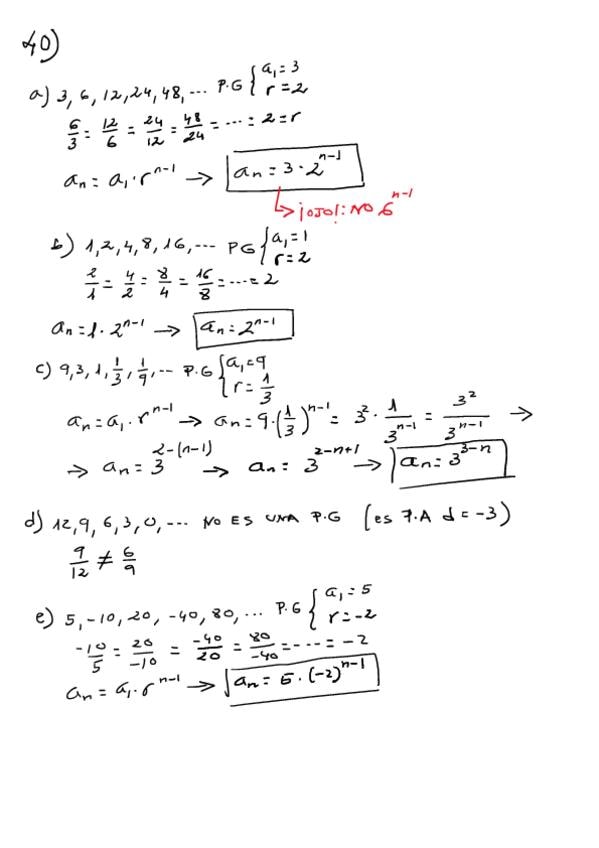 40)
a) 3, 6, 12, 24, 48, ... P.G { a₁ = 3
r = 2
6/3 = 12/6 = 24/12 = 48/24 = ... = 2 = r
aₙ = a₁ · r^(n-1) → aₙ = 3 · 2^(n-1)
↳ ¡OJO!: NO 6^(n-1)
b) 1, 2, 4, 8, 16, ... PG { a₁ = 1
r = 2
2/1 = 4/2 = 8/4 = 16/8 = ... = 2
aₙ = 1 · 2^(n-1) → aₙ = 2^(n-1)
c) 9, 3, 1, 1/3, 1/9, ... P.G { a₁ = 9
r = 1/3
aₙ = a₁ · r^(n-1) → aₙ = 9 · (1/3)^(n-1) = 3² · 1/3^(n-1) = 3²/3^(n-1) →
→ aₙ = 3^(2-(n-1)) → aₙ = 3^(2-n+1) → aₙ = 3^(3-n)
d) 12, 9, 6, 3, 0, ... NO ES UNA P.G (es P.A d = -3)
9/12 ≠ 6/9
e) 5, -10, 20, -40, 80, ... P.G { a₁ = 5
r = -2
-10/5 = 20/-10 = -40/20 = 80/-40 = ... = -2
aₙ = a₁ · r^(n-1) → aₙ = 5 · (-2)^(n-1)